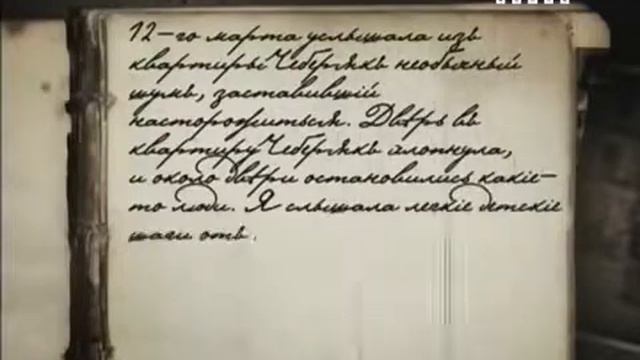 12-го марта услышала изъ
квартиры Чеберякъ необычный
шумъ, заставившiй
насторожиться. Дверь въ
квартиру Чеберякъ хлопнула,
и около двѣри остановились какiе-
то люди. Я слышала легкiе дѣтскiе
шаги отъ.